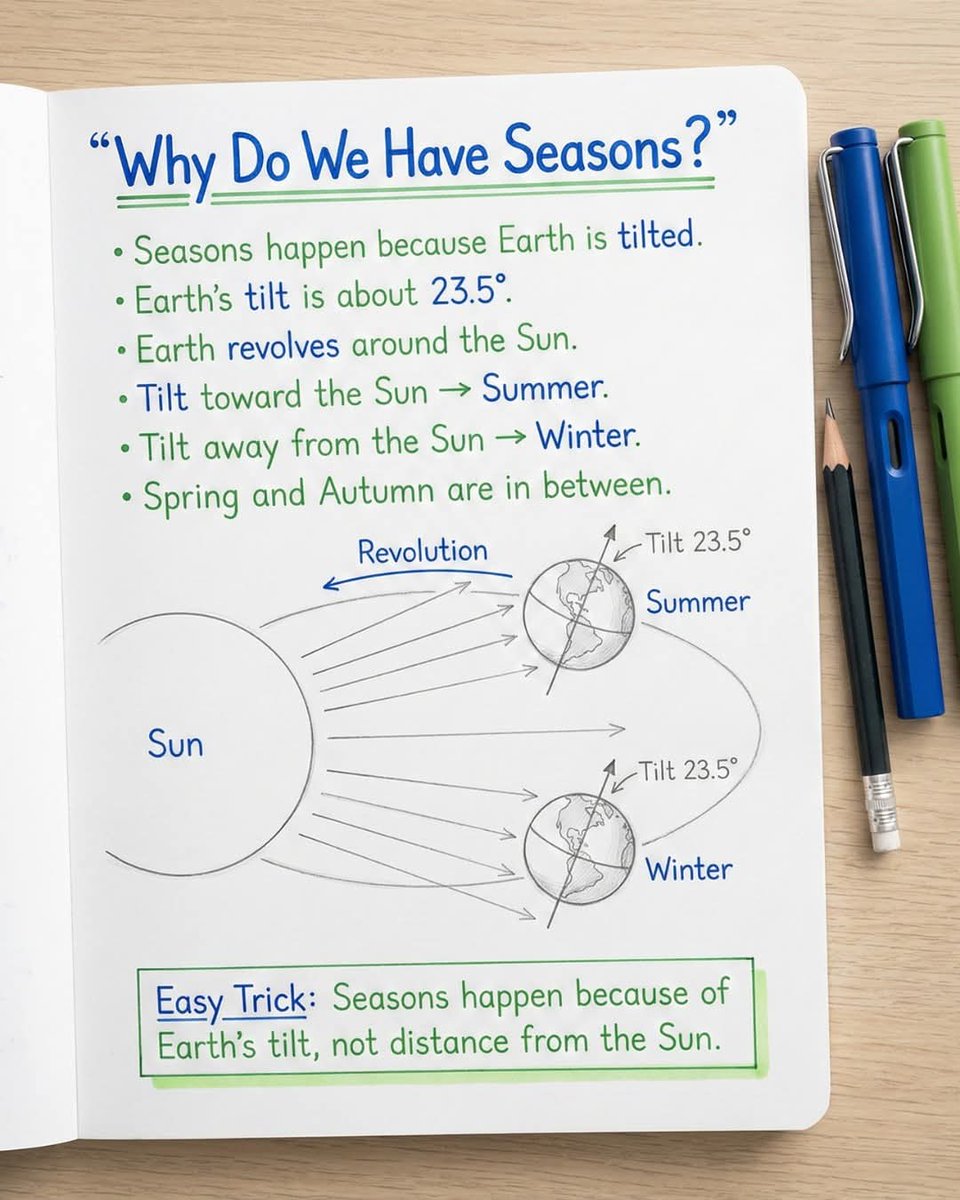 “Why Do We Have Seasons?”
• Seasons happen because Earth is tilted.
• Earth's tilt is about 23.5°.
• Earth revolves around the Sun.
• Tilt toward the Sun → Summer.
• Tilt away from the Sun → Winter.
• Spring and Autumn are in between.
Revolution
Tilt 23.5°
Summer
Sun
Tilt 23.5°
Winter
Easy Trick: Seasons happen because of
Earth's tilt, not distance from the Sun.